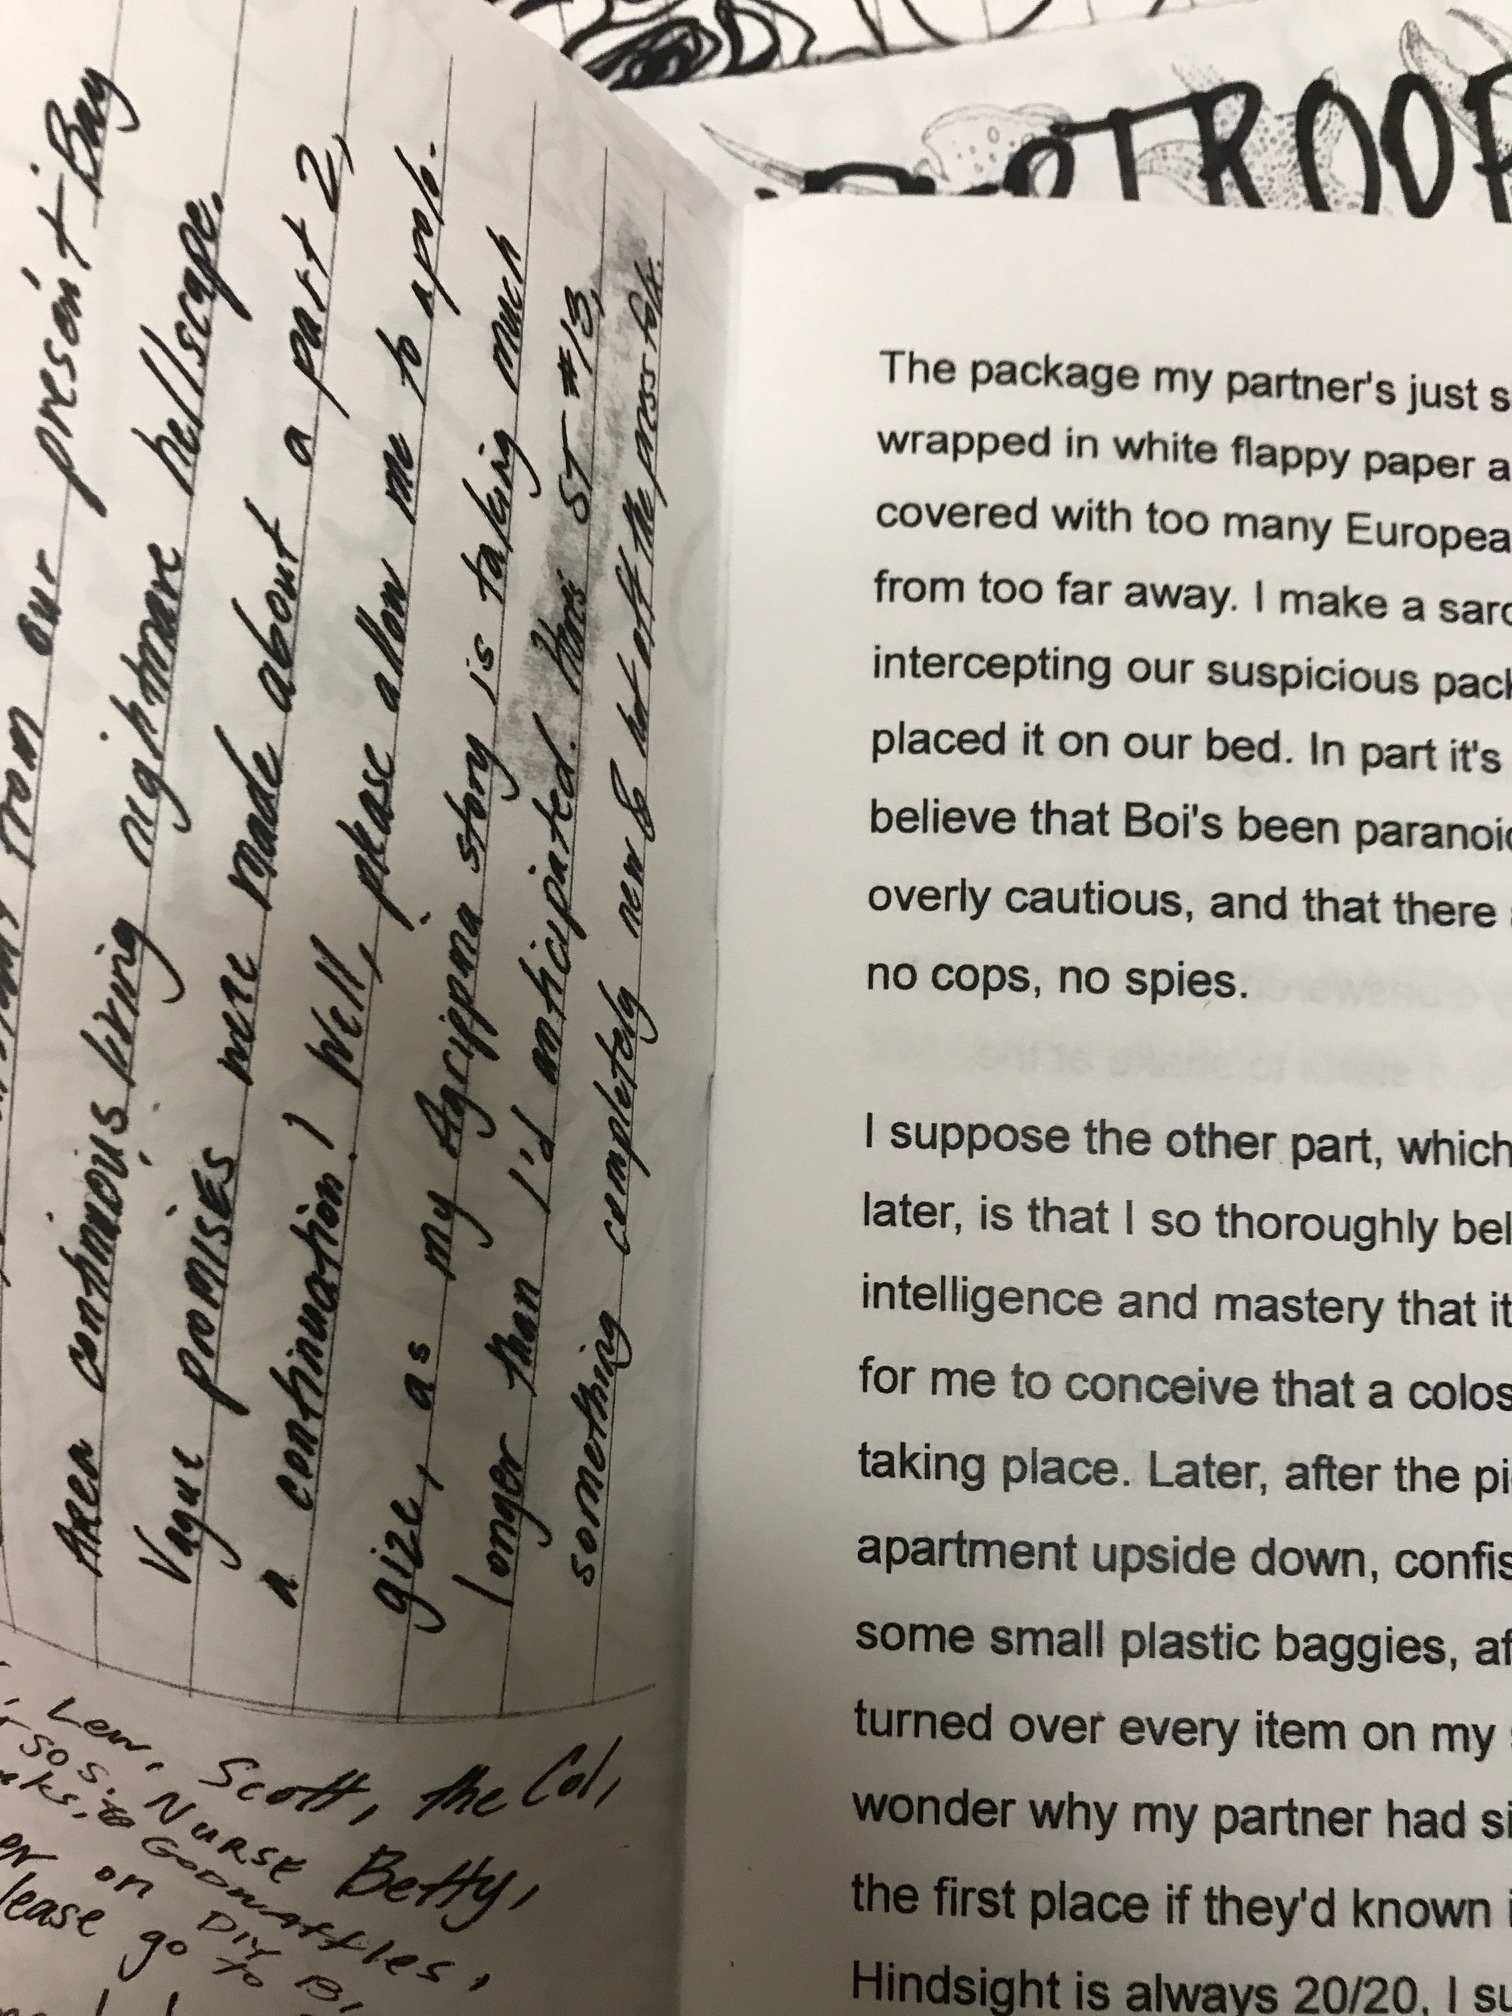 from our present Bay
Area continuous living nightmare hellscape.
Vague promises were made about a part 2,
a continuation! Well, please allow me to apolo-
gize, as my Agrippina story is taking much
longer than I'd anticipated. Here's ST #13,
something completely new & hot off the press folk.
Lew, Scott, the Col,
SOS, Nurse Betty,
& Godwaffles,
on DIY
please go to
TROOP
The package my partner's just s
wrapped in white flappy paper a
covered with too many Europea
from too far away. I make a sarc
intercepting our suspicious pack
placed it on our bed. In part it's
believe that Boi's been paranoic
overly cautious, and that there
no cops, no spies.
I suppose the other part, which
later, is that I so thoroughly bel
intelligence and mastery that it
for me to conceive that a colos
taking place. Later, after the pi
apartment upside down, confis
some small plastic baggies, af
turned over every item on my
wonder why my partner had si
the first place if they'd known i
Hindsight is always 20/20. I su